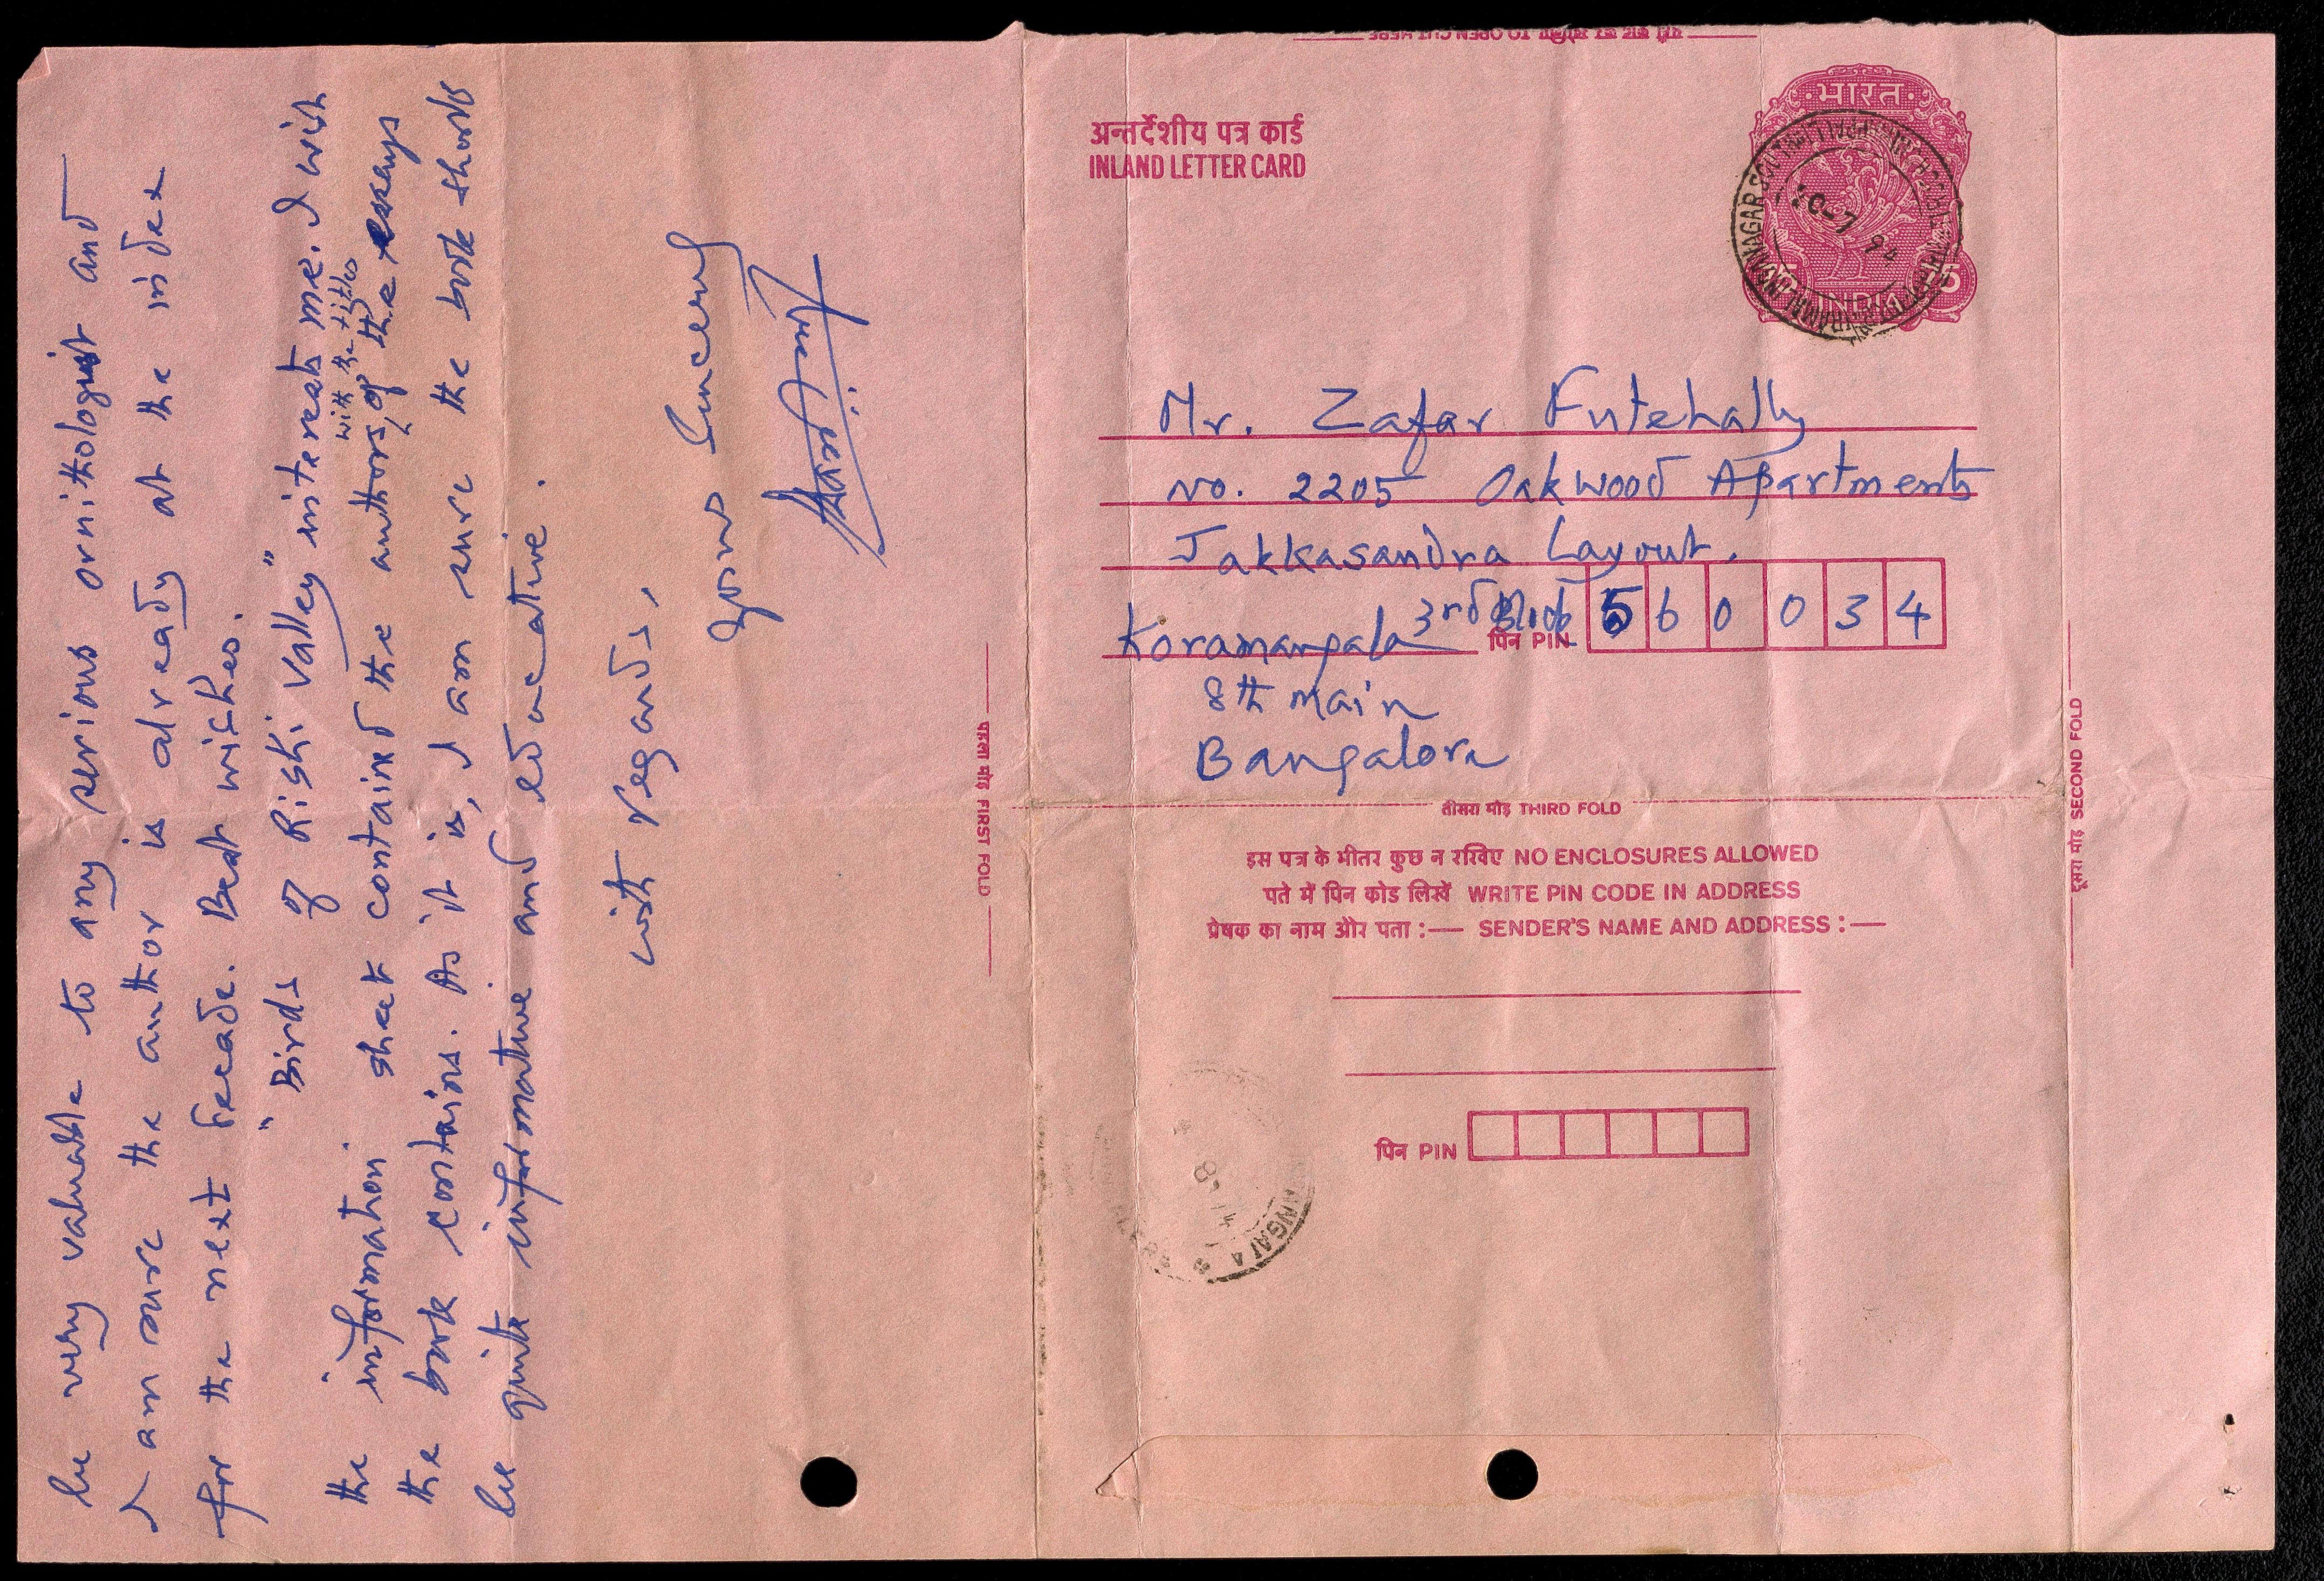 be very valuable to any serious ornithologist and
I am sure the author is already at the index
for the next decade. Best wishes.
"Birds of Rishi Valley" interests me. I wish
the information sheet contained the authors, with the titles of the essays
the book contains. As it is, I am sure the book should
be quite informative and educative.
with regards,
Yours Sincerely
पहला मोड़ FIRST FOLD
यहाँ काट कर खोलिए TO OPEN CUT HERE
अन्तर्देशीय पत्र कार्ड
INLAND LETTER CARD
भारत
75
INDIA
20-7 94
Mr. Zafar Futehally
No. 2205 Oakwood Apartments
Jakkasandra Layout.
Koramangala 3rd Block पिन PIN 560034
8th main
Bangalore
तीसरा मोड़ THIRD FOLD
इस पत्र के भीतर कुछ न रखिए NO ENCLOSURES ALLOWED
पते में पिन कोड लिखें WRITE PIN CODE IN ADDRESS
प्रेषक का नाम और पता :— SENDER'S NAME AND ADDRESS :—
पिन PIN
दूसरा मोड़ SECOND FOLD